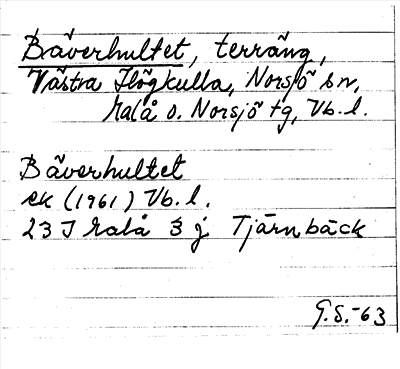 Bäverhultet, terräng,
Västra Högkulla, Norsjö sn,
Malå o. Norsjö tg, Vb. l.
Bäverhultet
ek (1961) Vb. l.
23 J Malå 3 j Tjärnbäck
G.S.-63